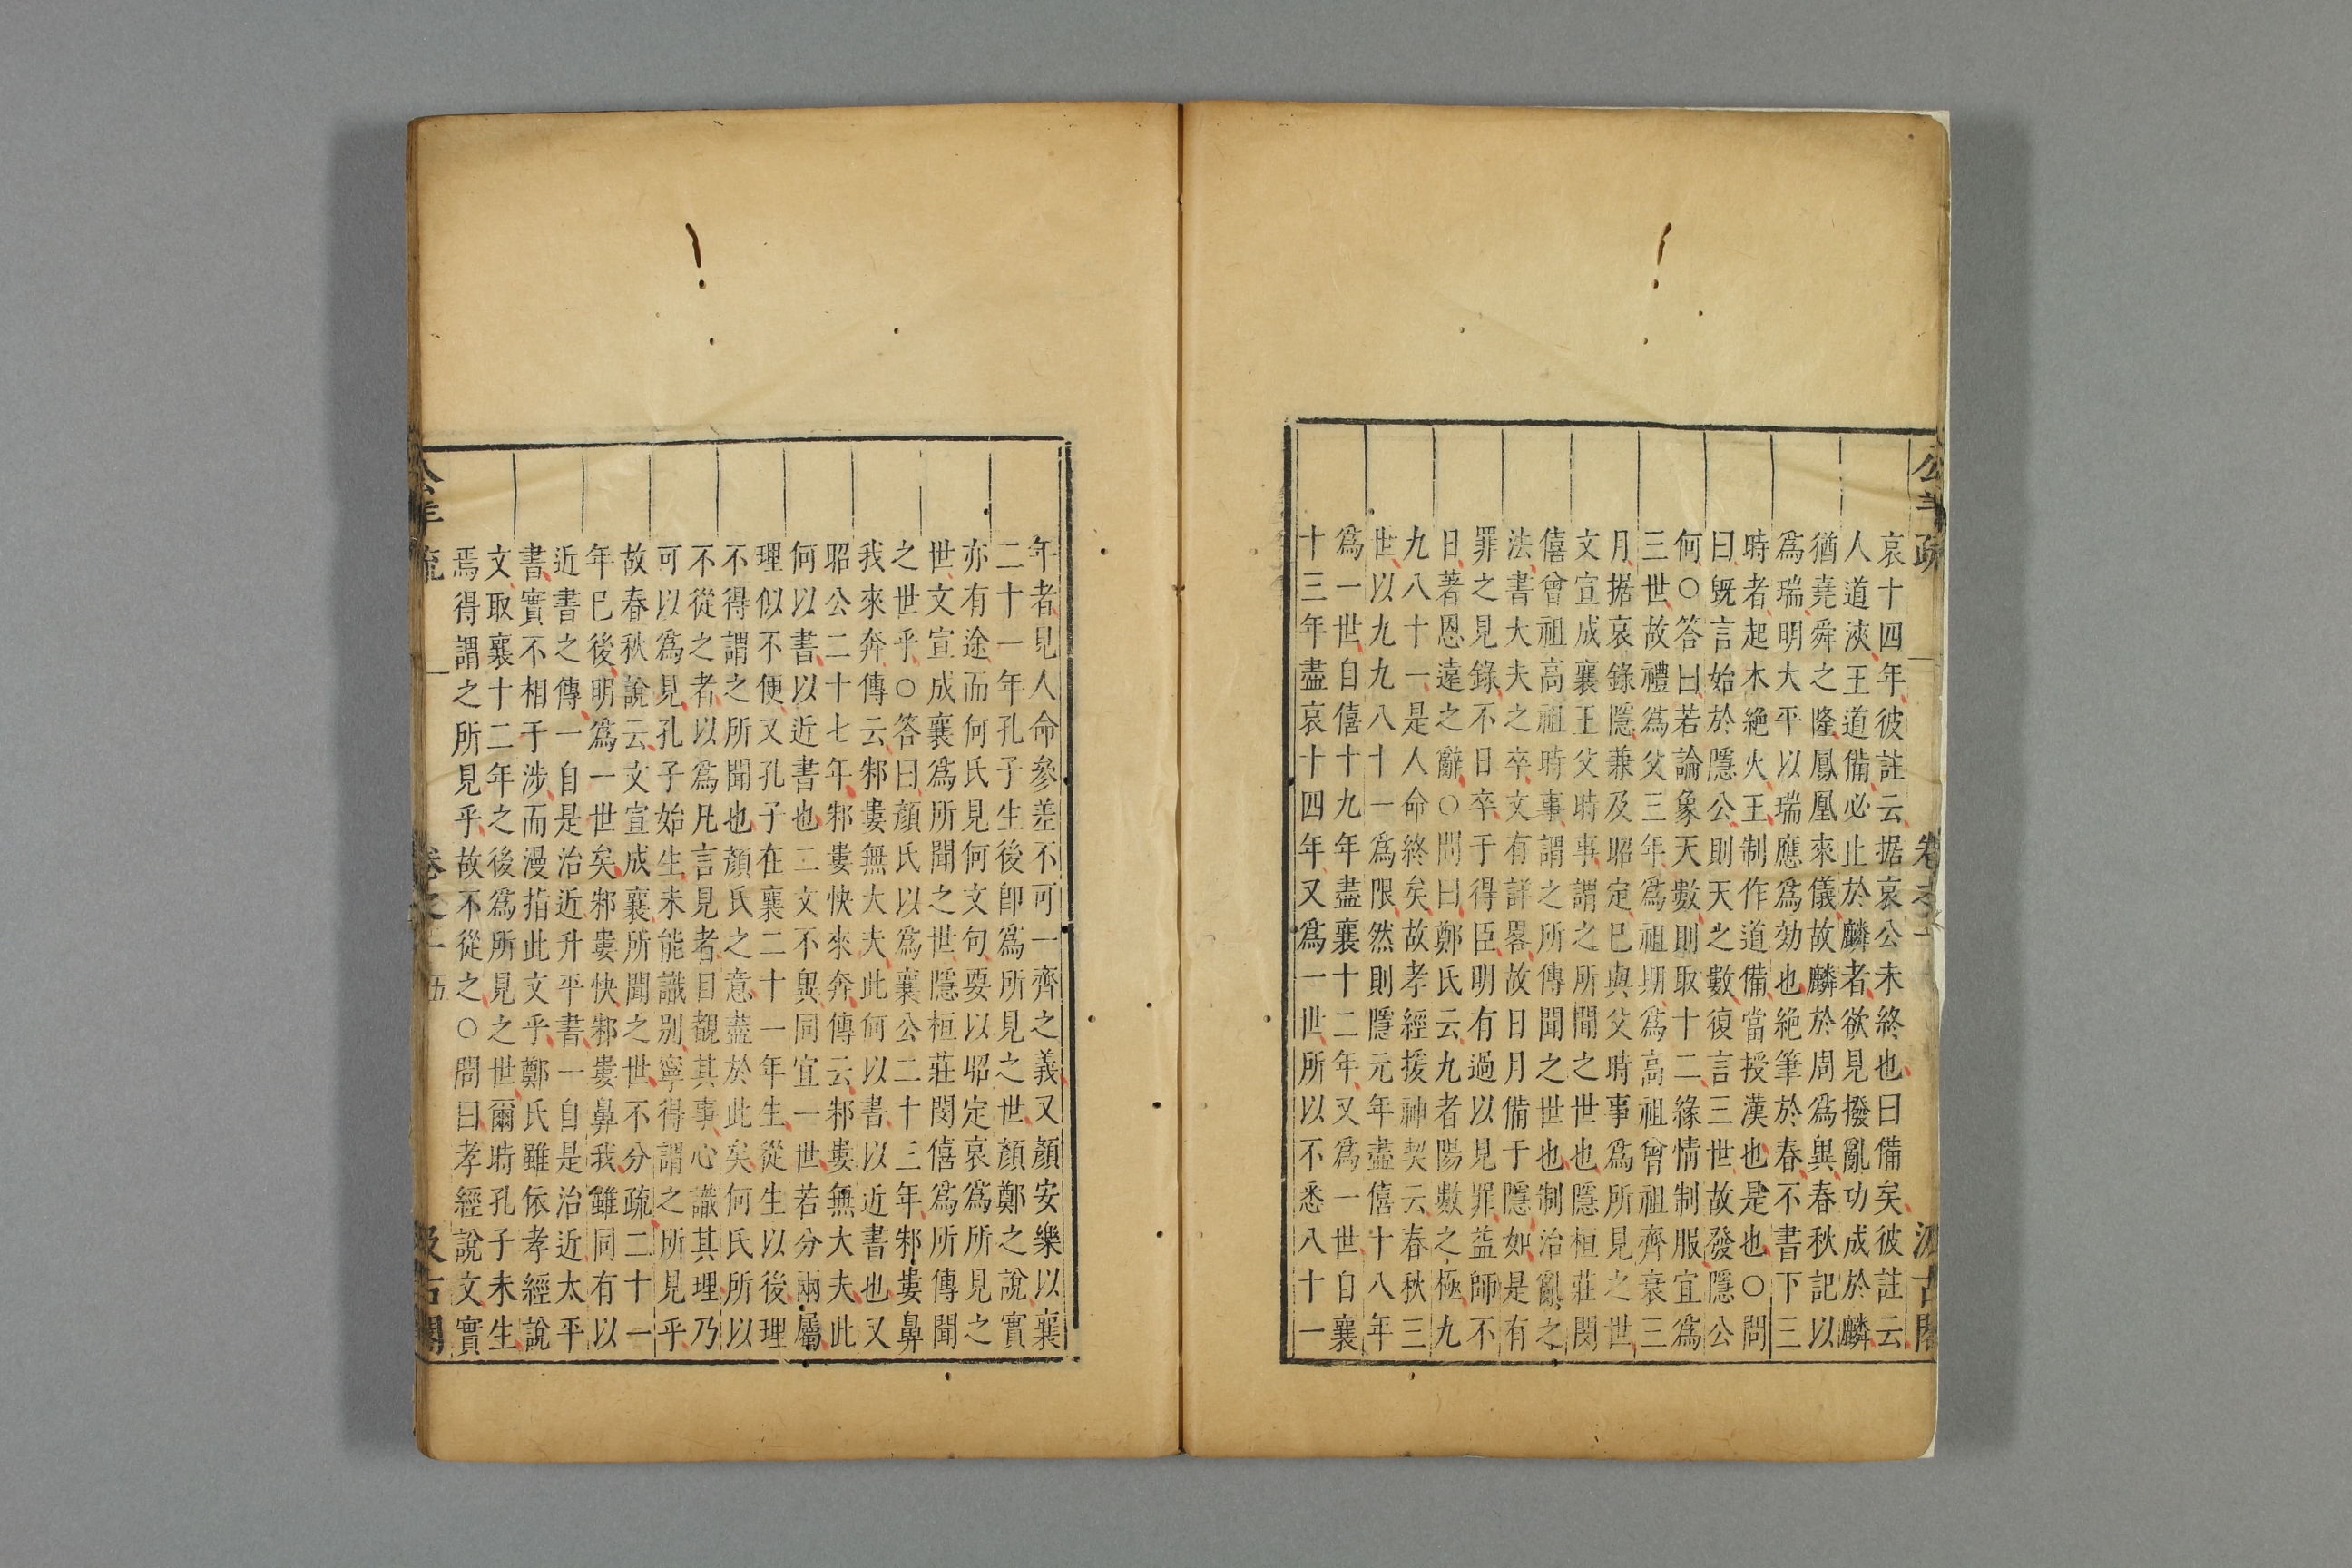 公羊疏 卷之一 汲古閣
哀十四年彼註云据哀公未終也曰備矣彼註云
人道浹王道備必止於麟者欲見撥亂功成於麟
猶堯舜之隆鳳凰來儀故麟於周爲異春秋記以
爲瑞明大平以瑞應爲効也絶筆於春不書下三
時者起木絶火王制作道備當授漢也是也○問
曰旣言始於隱公則天之數復言三世故發隱公
何○答曰若論象天數則取十二緣情制服宜爲
三世故禮爲父三年爲祖期爲高祖曾祖齊衰三
月据哀錄隱兼及昭定巳與父時事爲所見之世
文宣成襄王父時事謂之所聞之世也隱桓莊閔
僖曾祖高祖時事謂之所傳聞之世也制治亂之
法書大夫之卒文有詳畧故日月備于隱如是有
罪之見錄不日卒于得臣明有過以見罪益師不
日著恩遠之辭○問曰鄭氏云九者陽數之極九
九八十一是人命終矣故孝經援神契云春秋三
世以九九八十一爲限然則隱元年盡僖十八年
爲一世自僖十九年盡襄十二年又爲一世自襄
十三年盡哀十四年又爲一世所以不悉八十一
年者見人命參差不可一齊之義又顏安樂以襄
二十一年孔子生後卽爲所見之世顏鄭之說實
亦有途而何氏見何文句要以昭定哀爲所見之
世文宣成襄爲所聞之世隱桓莊閔僖爲所傳聞
之世乎○答曰顏氏以爲襄公二十三年邾婁鼻
我來奔傳云邾婁無大夫此何以書以近書也又
昭公二十七年邾婁快來奔傳云邾婁無大夫此
何以書以近書也二文不異同宜一世若分兩屬
理似不便又孔子在襄二十一年生從生以後理
不得謂之所聞也顏氏之意盡於此矣何氏所以
不從之者以爲凡言見者目覩其事心識其理乃
可以爲見孔子始生未能識別寧得謂之所見乎
故春秋說云文宣成襄所聞之世不分疏二十一
年巳後明爲一世矣邾婁快邾婁鼻我雖同有以
近書之傳一自是治近升平書一自是治近太平
書實不相干涉而漫指此文乎鄭氏雖依孝經說
文取襄十二年之後爲所見之世爾時孔子未生
焉得謂之所見乎故不從之○問曰孝經說文實
公羊疏 卷之一 五 汲古閣